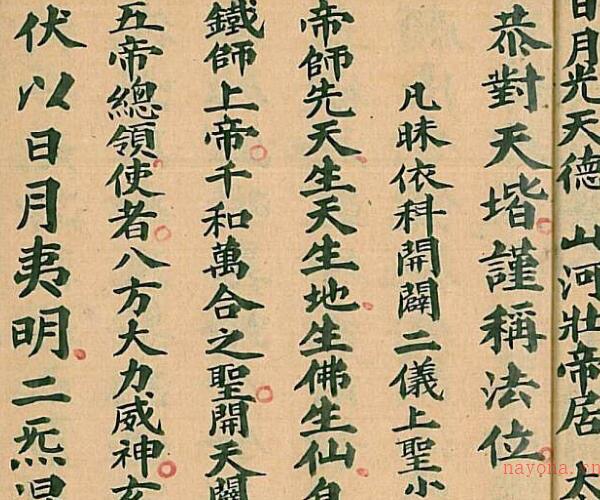 日月光天德 山河壯帝居 太
恭對天堦謹稱法位
凡昧依科開闢二儀上聖小
帝師先天生天生地生佛生仙自
鐵師上帝千和萬合之聖開天闢
五帝總領使者八方大力威神玄
伏以日月夷明二炁混
nayona.cn